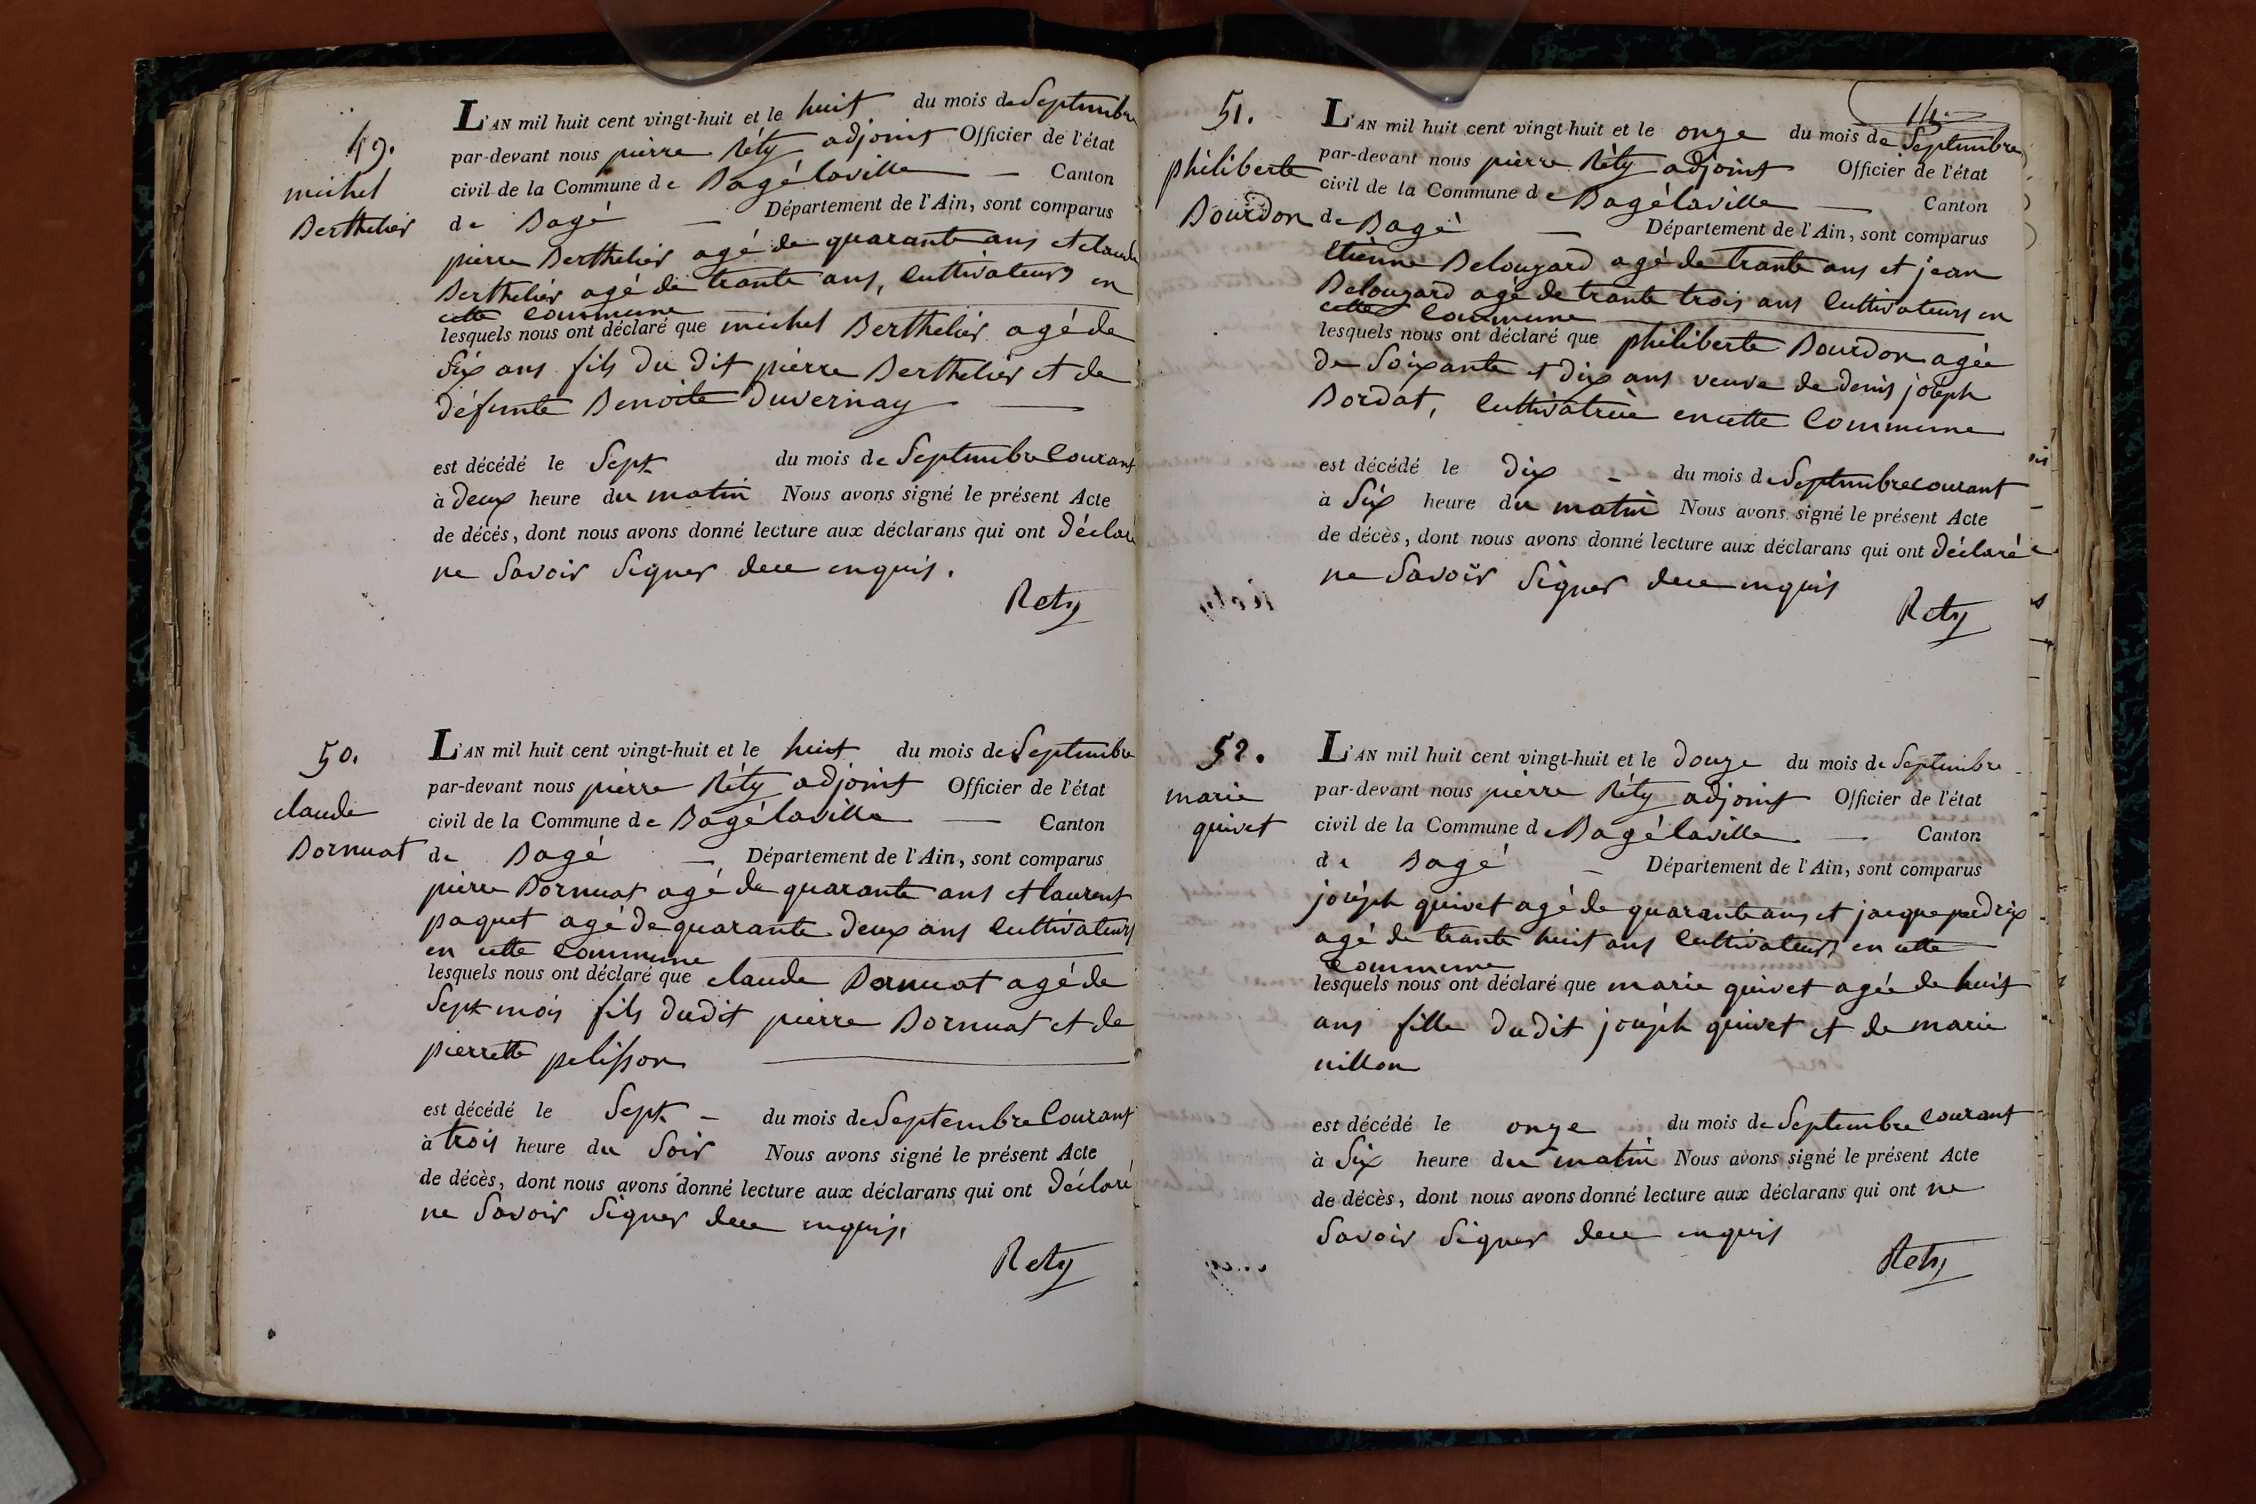 49.
michel
Berthelier
L'AN mil huit cent vingt-huit et le huit du mois de Septembre
par-devant nous pierre Réty adjoint Officier de l'état
civil de la Commune de Bagé laville — Canton
de Bagé — Département de l'Ain, sont comparus
pierre Berthelier agé de quarante ans et claude
Berthelier agé de trante ans, Cultivateurs en
cette Commune
lesquels nous ont déclaré que michel Berthelier agé de
Six ans fils du dit pierre Berthelier et de
défunte Benoite Duvernay —
est décédé le Sept du mois de Septembre Courant
à deux heure du matin Nous avons signé le présent Acte
de décès, dont nous avons donné lecture aux déclarans qui ont déclaré
ne Savoir Signer de ce enquis.
Rety
50.
claude
Bornuat
L'AN mil huit cent vingt-huit et le huit du mois de Septembre
par-devant nous pierre Réty adjoint Officier de l'état
civil de la Commune de Bagé laville — Canton
de Bagé — Département de l'Ain, sont comparus
pierre Bornuat agé de quarante ans et laurent
paquet agé de quarante deux ans Cultivateurs
en cette Commune
lesquels nous ont déclaré que claude Bornuat agé de
Sept mois fils dudit pierre Bornuat et de
pierrette pelisson —
est décédé le Sept — du mois de Septembre Courant
à trois heure du Soir Nous avons signé le présent Acte
de décès, dont nous avons donné lecture aux déclarans qui ont déclaré
ne Savoir Signer de ce enquis.
Rety
51.
philiberte
Bourdon
L'AN mil huit cent vingt-huit et le onze du mois de Septembre
par-devant nous pierre Réty adjoint Officier de l'état
civil de la Commune de Bagé laville — Canton
de Bagé — Département de l'Ain, sont comparus
Etienne Belouzard agé de trante ans et jean
Belouzard agé de trante trois ans Cultivateurs en
cette Commune
lesquels nous ont déclaré que philiberte Bourdon agée
de Soixante et dix ans veuve de denis joseph
Bordat, Cultivatrice en cette Commune
est décédé le dix — du mois de Septembre courant
à Six heure du matin Nous avons signé le présent Acte
de décès, dont nous avons donné lecture aux déclarans qui ont déclaré
ne Savoir Signer de ce enquis
Rety
52.
marie
quivet
L'AN mil huit cent vingt-huit et le douze du mois de Septembre
par-devant nous pierre Réty adjoint Officier de l'état
civil de la Commune de Bagé laville — Canton
de Bagé — Département de l'Ain, sont comparus
joséph quivet agé de quarante ans et jacque perdrix
agé de trante huit ans Cultivateurs en cette
Commune
lesquels nous ont déclaré que marie quivet agée de huit
ans fille dudit joséph quivet et de marie
est décédé le onze du mois de Septembre Courant
à Six heure du matin Nous avons signé le présent Acte
de décès, dont nous avons donné lecture aux déclarans qui ont ne
Savoir Signer de ce enquis
Rety